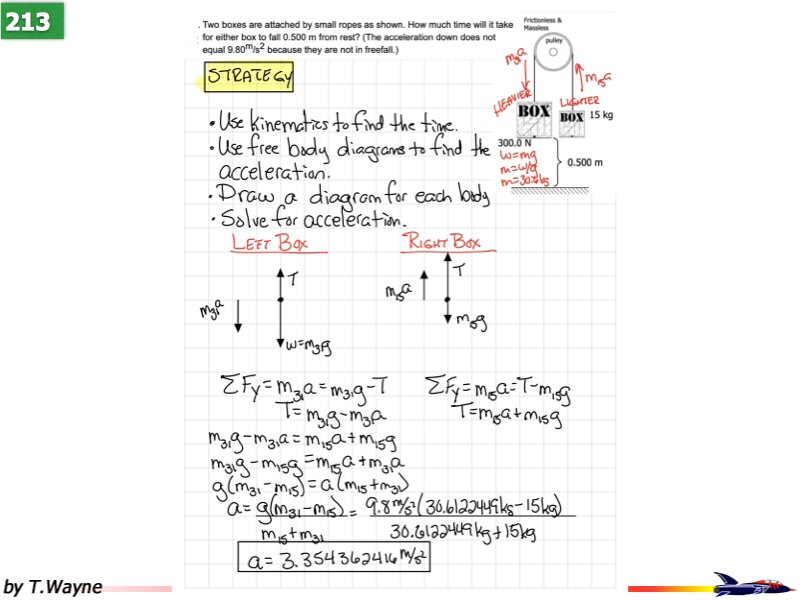 213
. Two boxes are attached by small ropes as shown. How much time will it take
for either box to fall 0.500 m from rest? (The acceleration down does not
equal 9.80m/s2 because they are not in freefall.)
Frictionless &
Massless
pulley
m31a
m15a
HEAVIER
LIGHTER
BOX
BOX
15 kg
300.0 N
w=mg
m=w/g
m=30.6kg
0.500 m
STRATEGY
• Use kinematics to find the time.
• Use free body diagrams to find the
acceleration.
• Draw a diagram for each body
• Solve for acceleration.
LEFT BOX
RIGHT BOX
T
m31a
w=m31g
T
m15a
m15g
ΣFy=m31a=m31g-T
T=m31g-m31a
ΣFy=m15a=T-m15g
T=m15a+m15g
m31g-m31a=m15a+m15g
m31g-m15g=m15a+m31a
g(m31-m15)=a(m15+m31)
a=g(m31-m15)/m15+m31=9.8m/s²(30.6122449kg-15kg)/30.6122449kg+15kg
a=3.354362416 m/s²
by T.Wayne